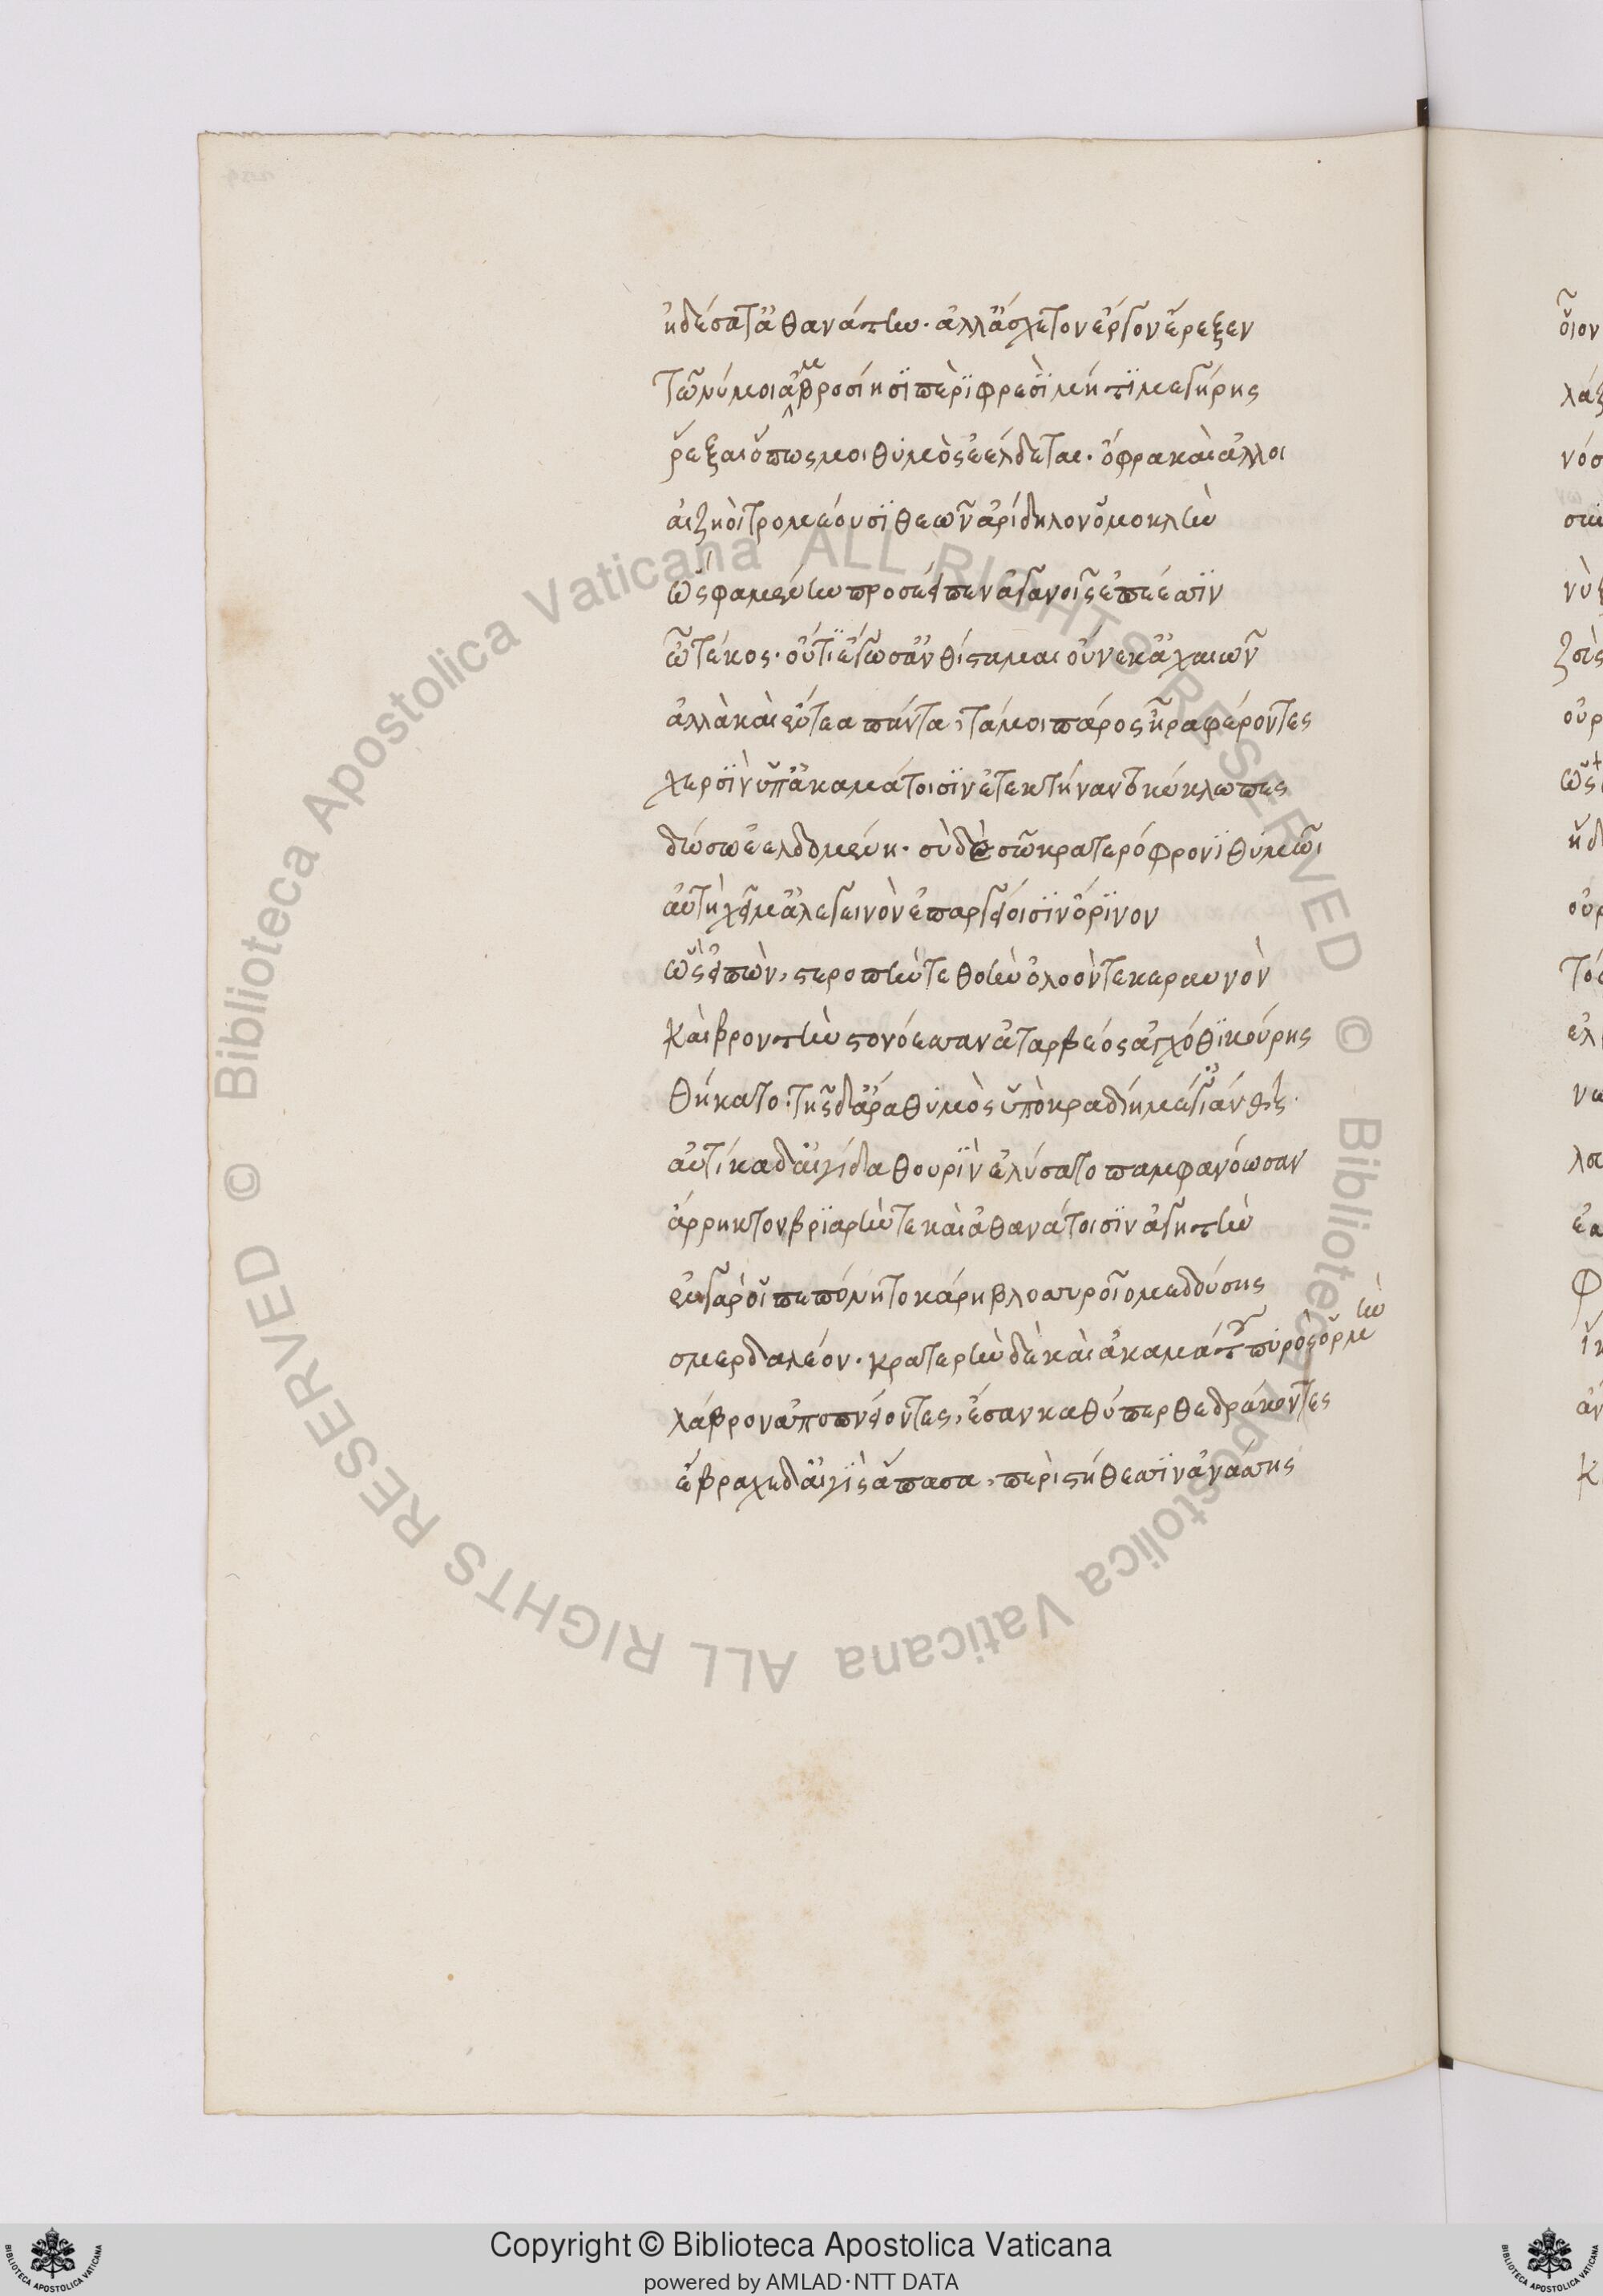 ᾐδέσατ' ἀθανάτην. ἀλλ' ἄσχετον ἔργον ἔρεξεν
τῶ νύ μοι ἀμβροσίῃσι περὶ φρεσὶ μήτι μεγήρῃς
ῥέξαι ὅπως μοι θυμὸς ἐέλδεται. ὄφρα καὶ ἄλλοι
αἰζηοὶ τρομέουσι θεῶν ἀρίδηλον ὁμοκλήν
ὣς φαμένην προσέειπεν ἀγανοῖς ἐπέεσσιν
ὦ τέκος. οὔτι ἔγωσ' ἀνθίσταμαι οὕνεκ' ἀχαιῶν
ἀλλὰ καὶ ἔντεα πάντα, τά μοι πάρος ἦρα φέροντες
χερσὶν ὑπ' ἀκαμάτοισιν ἐτεκτήναντο κύκλωπες
δώσω ἐελδομένῃ. σὺ δὲ σῶ κρατερόφρονι θυμῶι
αὐτὴ χεῖμ' ἀλεγεινὸν ἐπ' ἀργείοισιν ὄρινον
ὣς εἰπὼν, στεροπήν τε θοὴν ὀλοόν τε κεραυνὸν
καὶ βροντὴν στονόεσσαν ἀταρβέος ἀγχόθι κούρης
θήκατο. τῆς δ' ἄρα θυμὸς ὑπὸ κραδίη μέγ' ἰάνθης.
αὐτίκα δ' αἰγίδα θοῦριν ἐλύσατο παμφανόωσαν
ἄρρηκτον βριαρήν τε καὶ ἀθανάτοισιν ἀγητήν
ἐν γάρ οἱ πεπόνητο κάρη βλοσυροῖο μεδούσης
σμερδαλέον. κρατερὴν δὲ καὶ ἀκαμάτου πυρὸς ὁρμήν
λάβρον ἀποπνείοντες, ἔσαν καθύπερθε δράκοντες
ἔβραχε δ' αἰγὶς ἅπασα, περὶ στήθεσσιν ἀνάσσης
Copyright © Biblioteca Apostolica Vaticana
powered by AMLAD·NTT DATA